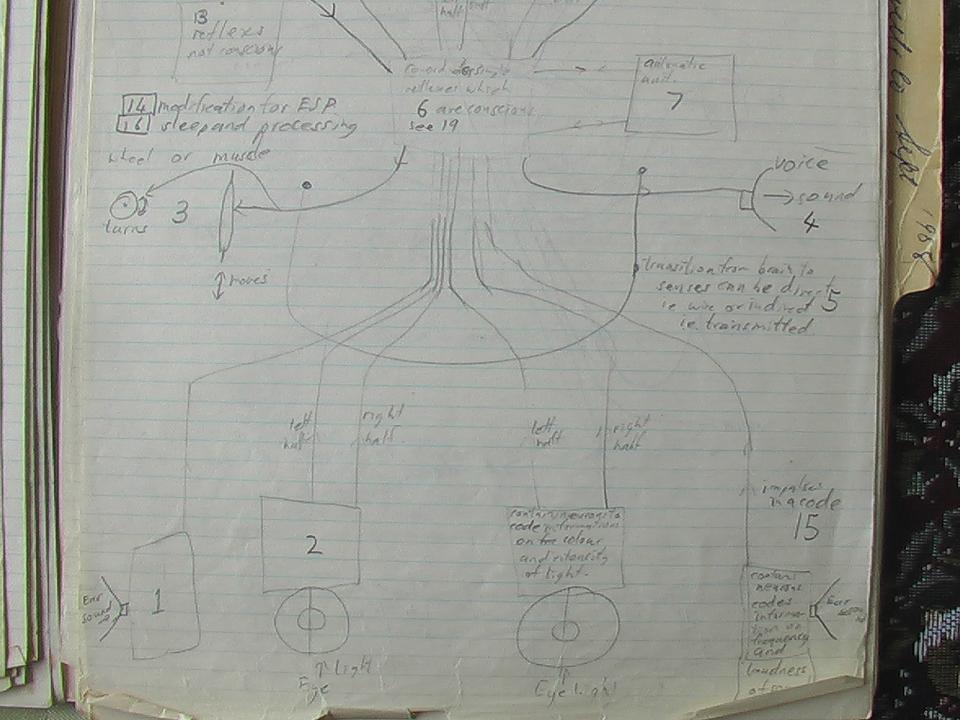 13
reflexes
not conscious
half
6 are conscious
see 19
automatic
unit.
7
14 modification for ESP
16 sleep and processing
wheel or muscle
turns
3
moves
voice
sound
4
transition from brain to
senses can be direct 5
i.e. wire or indirect
i.e. transmitted
left
half
right
half
left
half
right
half
impulses
in a code
15
1
Ear
sound
2
contains neurons to
code informations
on the colour
and intensity
of light.
contains
neurons
codes
informa-
tion on
frequency
and
loudness
of
Ear
light
Eye
Eye light
Sept 1988